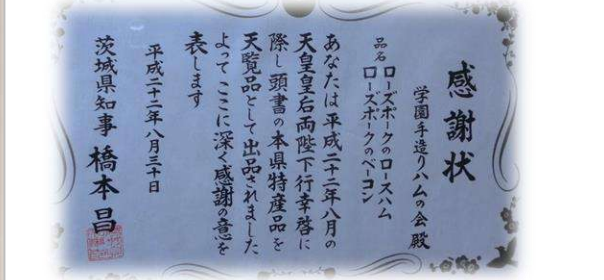 感謝状
学園手造りハムの会殿
品名 ローズポークのロースハム
ローズポークのベーコン
あなたは平成二十二年八月の
天皇皇后両陛下行幸啓に
際し頭書の本県特産品を
天覧品として出品されました
よってここに深く感謝の意を
表します
平成二十二年八月三十日
茨城県知事 橋本昌